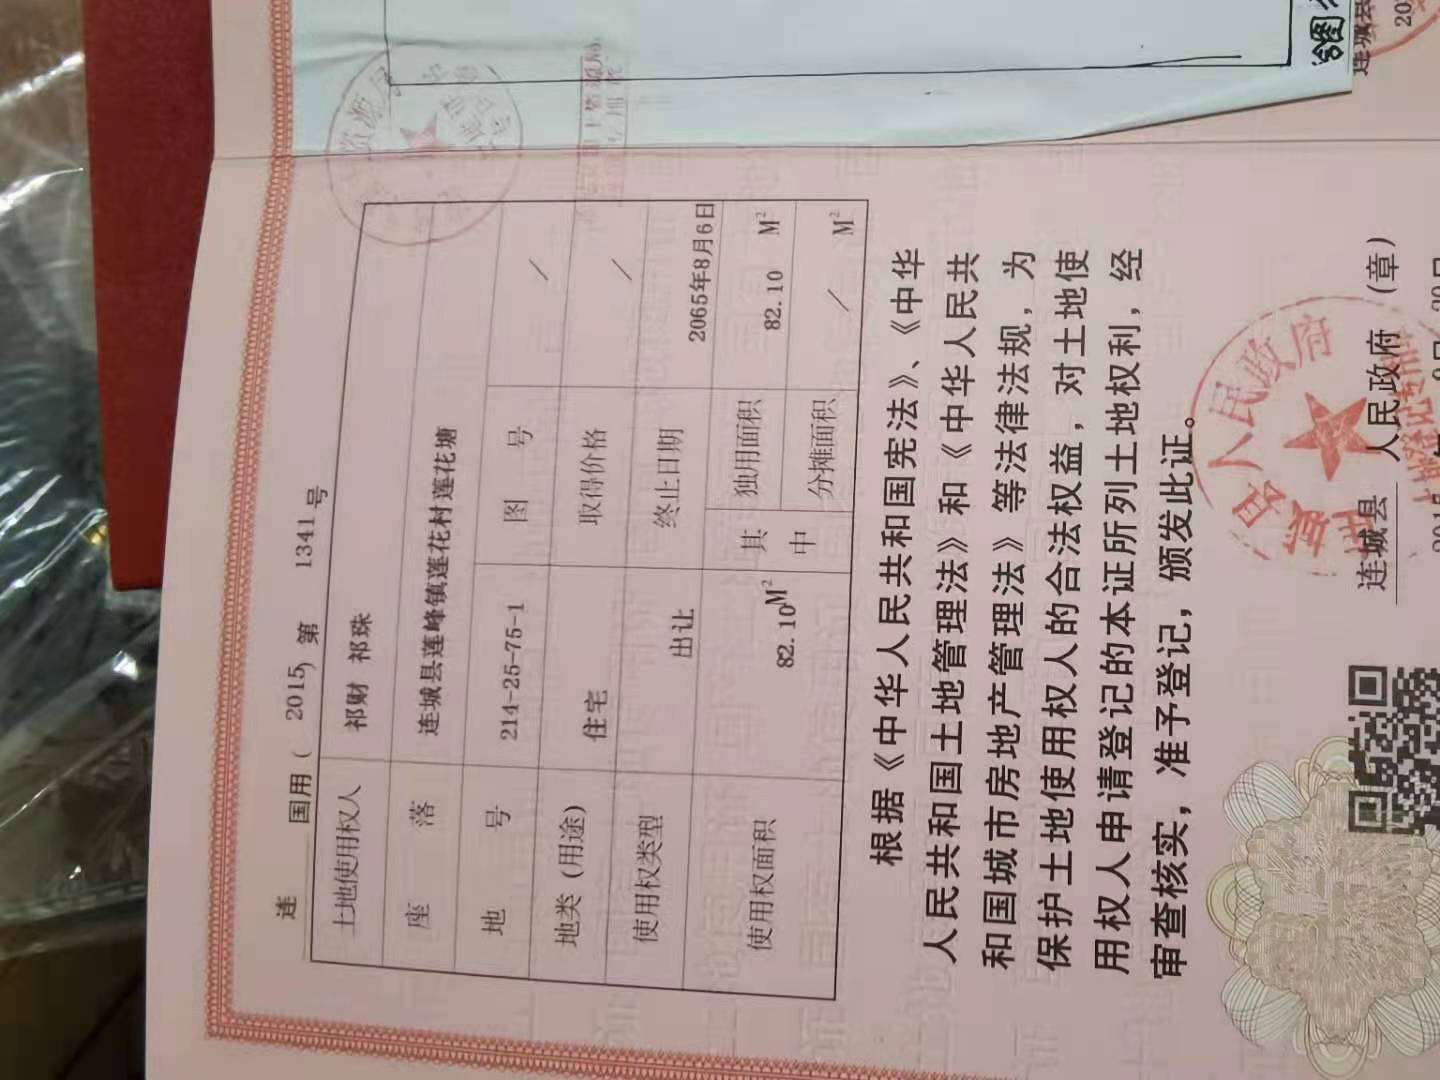 连 国用（2015）第 1341 号
土地使用权人 祁财 祁珠
座 落 连城县莲峰镇莲花村莲花塘
地 号 214-25-75-1 图 号 /
地类（用途） 住宅 取得价格 /
使用权类型 出让 终止日期 2065年8月6日
使用权面积 82.10M² 其中 独用面积 82.10 M²
分摊面积 / M²
根据《中华人民共和国宪法》、《中华
人民共和国土地管理法》和《中华人民共
和国城市房地产管理法》等法律法规，为
保护土地使用权人的合法权益，对土地使
用权人申请登记的本证所列土地权利，经
审查核实，准予登记，颁发此证。
连城县 人民政府（章）
人民政府